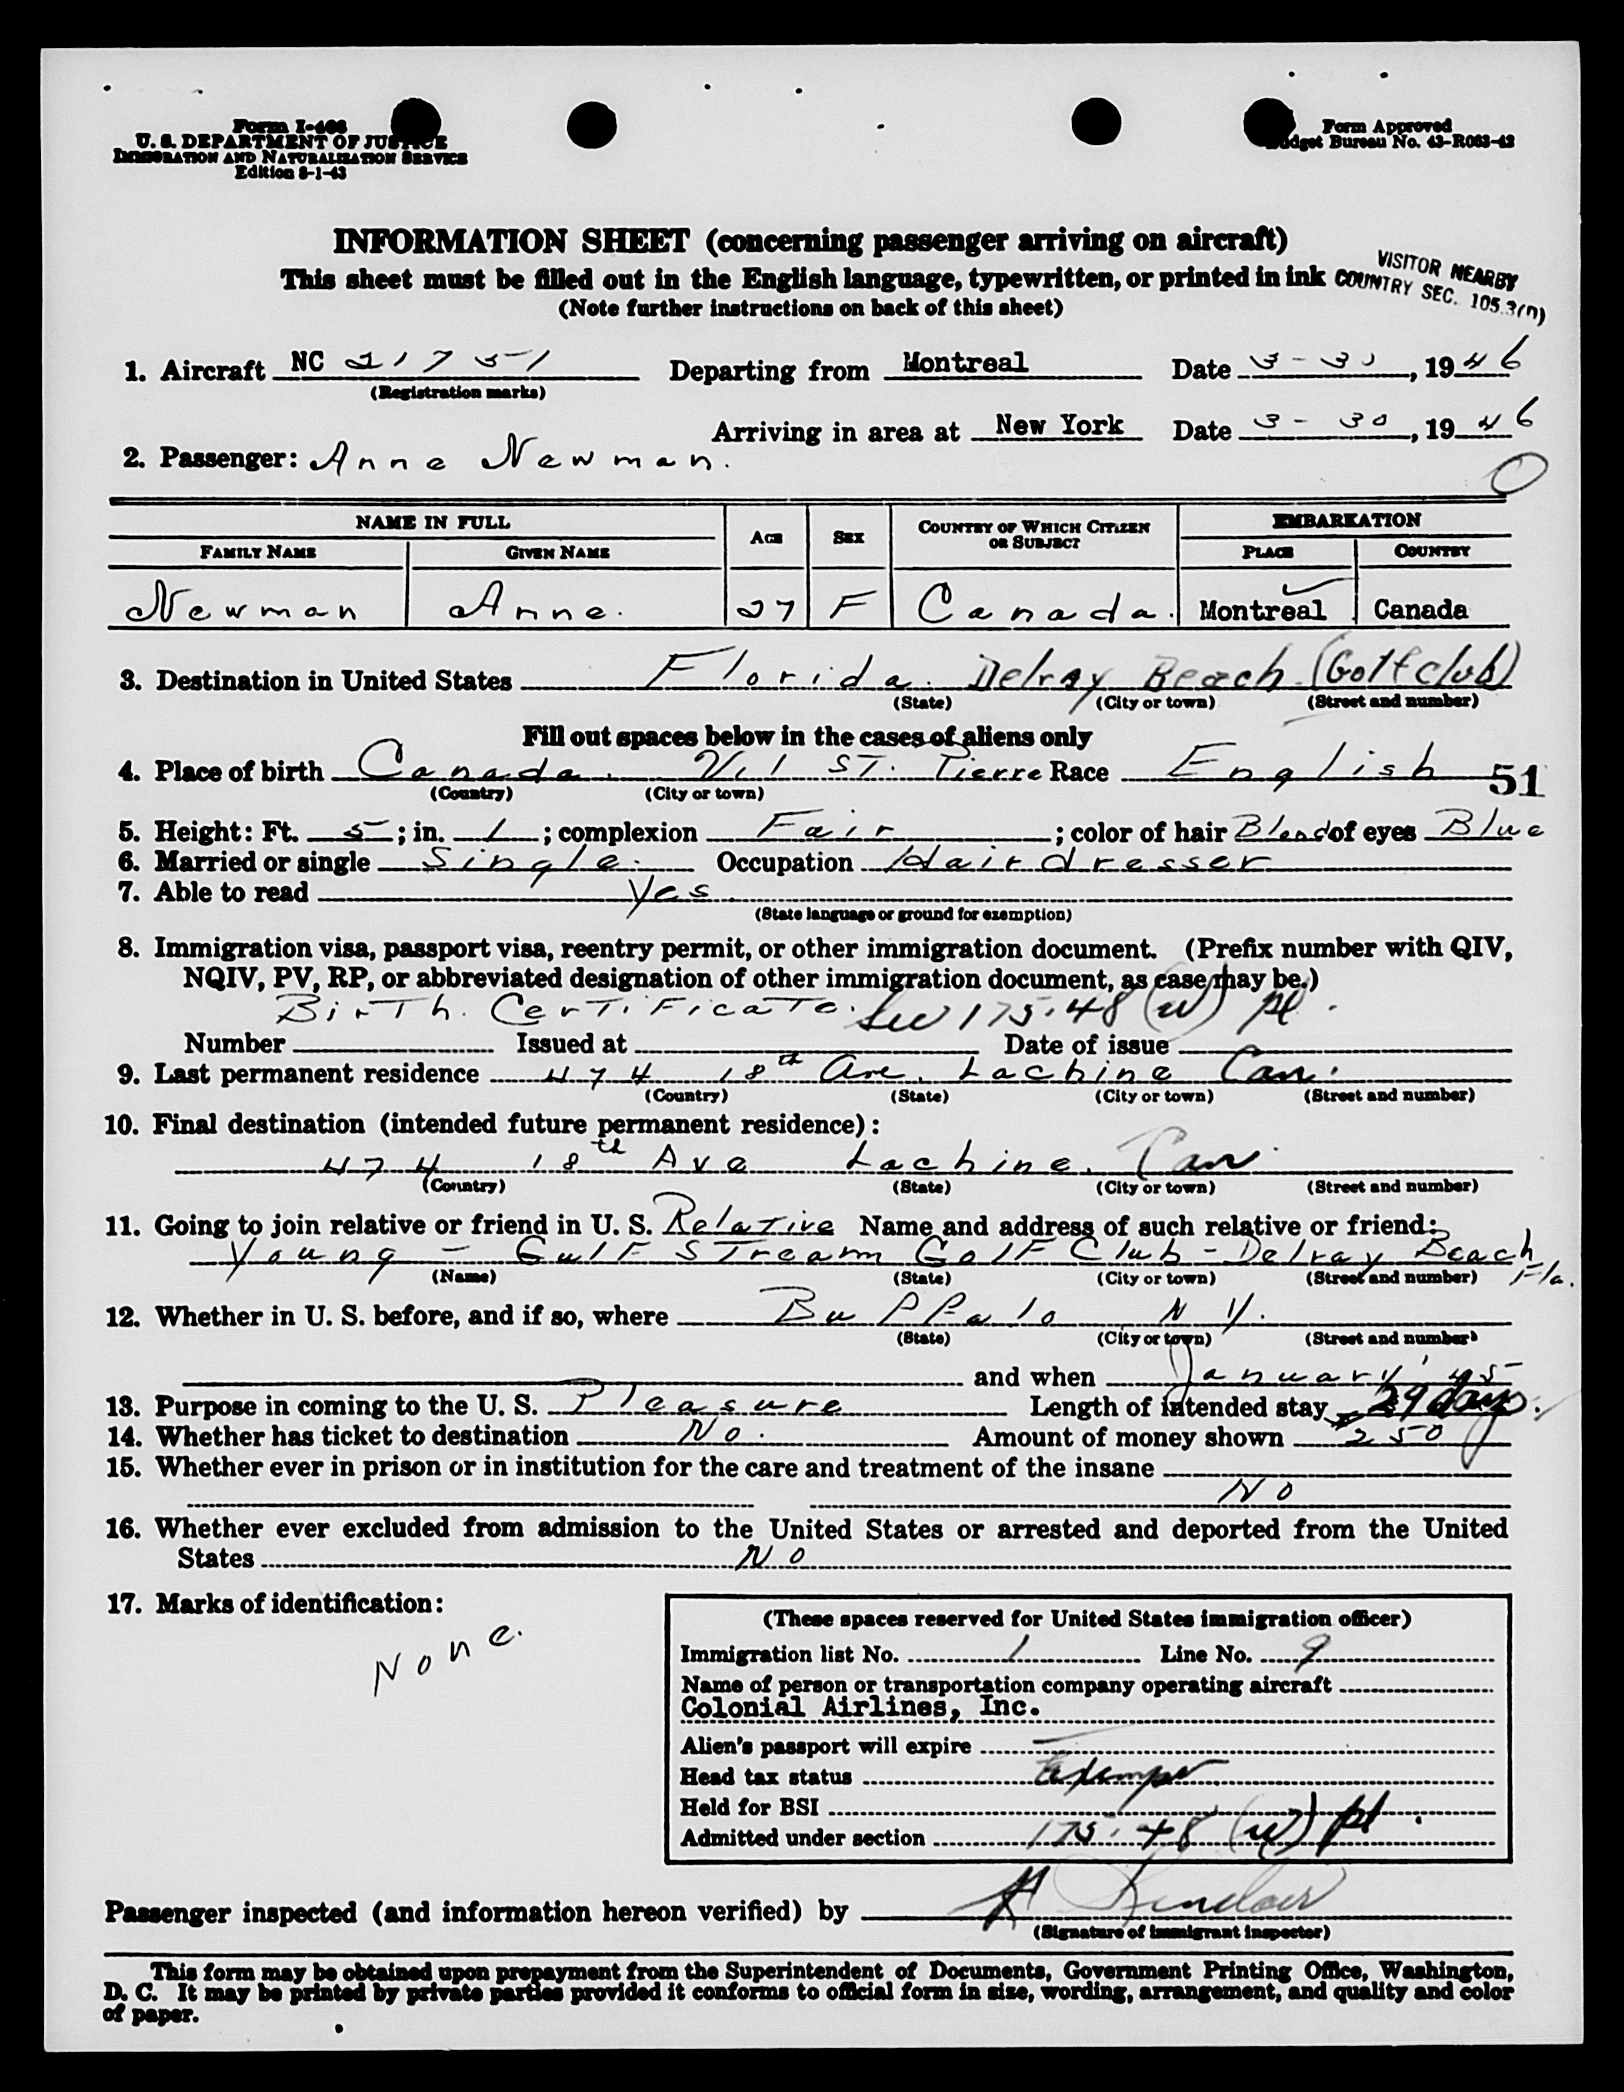 Form I-466
U. S. DEPARTMENT OF JUSTICE
IMMIGRATION AND NATURALIZATION SERVICE
Edition 8-1-43
Form Approved
Budget Bureau No. 43-R063-42
INFORMATION SHEET (concerning passenger arriving on aircraft)
This sheet must be filled out in the English language, typewritten, or printed in ink
(Note further instructions on back of this sheet)
VISITOR NEARBY
COUNTRY SEC. 105.3(n)
1. Aircraft NC 21751 Departing from Montreal Date 3-30, 1946
(Registration marks)
Arriving in area at New York Date 3-30, 1946
2. Passenger: Anne Newman.
NAME IN FULL AGE SEX COUNTRY OF WHICH CITIZEN OR SUBJECT EMBARKATION
FAMILY NAME GIVEN NAME PLACE COUNTRY
Newman Anne. 27 F Canada. Montreal Canada
3. Destination in United States Florida. Delray Beach (Golf club)
(State) (City or town) (Street and number)
Fill out spaces below in the cases of aliens only
4. Place of birth Canada. Vil ST. Pierre Race English 51
(Country) (City or town)
5. Height: Ft. 5; in. 1; complexion Fair; color of hair Blond of eyes Blue
6. Married or single Single. Occupation Hairdresser
7. Able to read Yes.
(State language or ground for exemption)
8. Immigration visa, passport visa, reentry permit, or other immigration document. (Prefix number with QIV,
NQIV, PV, RP, or abbreviated designation of other immigration document, as case may be.)
BirTh. CerTiFicaTe. Sec 175.48 (w) pl.
Number Issued at Date of issue
9. Last permanent residence 474 18th Ave. Lachine Can.
(Country) (State) (City or town) (Street and number)
10. Final destination (intended future permanent residence):
474 18th Ave Lachine. Can.
(Country) (State) (City or town) (Street and number)
11. Going to join relative or friend in U. S. RelaTive Name and address of such relative or friend:
Young - GulF STream GolF Club - Delray Beach Fla.
(Name) (State) (City or town) (Street and number)
12. Whether in U. S. before, and if so, where Buffalo N Y.
(State) (City or town) (Street and number)
and when January '45
13. Purpose in coming to the U. S. Pleasure Length of intended stay 29 days.
14. Whether has ticket to destination No. Amount of money shown $250
15. Whether ever in prison or in institution for the care and treatment of the insane
No
16. Whether ever excluded from admission to the United States or arrested and deported from the United
States No
17. Marks of identification:
None.
(These spaces reserved for United States immigration officer)
Immigration list No. 1 Line No. 9
Name of person or transportation company operating aircraft
Colonial Airlines, Inc.
Alien's passport will expire
Head tax status Exempt
Held for BSI
Admitted under section 175.48 (w) pl.
Passenger inspected (and information hereon verified) by H Sinclair
(Signature of immigrant inspector)
This form may be obtained upon prepayment from the Superintendent of Documents, Government Printing Office, Washington,
D. C. It may be printed by private parties provided it conforms to official form in size, wording, arrangement, and quality and color
of paper.